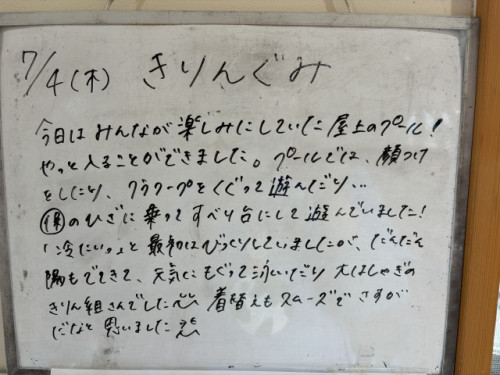 7/4(木) きりんぐみ
今日は みんなが楽しみにしていた 屋上のプール!
やっと入ることができました。プールでは、顔つけ
をしたり、フラフープをくぐって 遊んだり、、
保のひざに 乗って すべり台にして 遊んでいました!
「冷たい。」と 最初はびっくりしていましたが、だんだん
陽もでてきて、元気にもぐって 泳いだり 大はしゃぎの
きりん組さんでした 着替えも スムーズで さすが
だなと 思いました